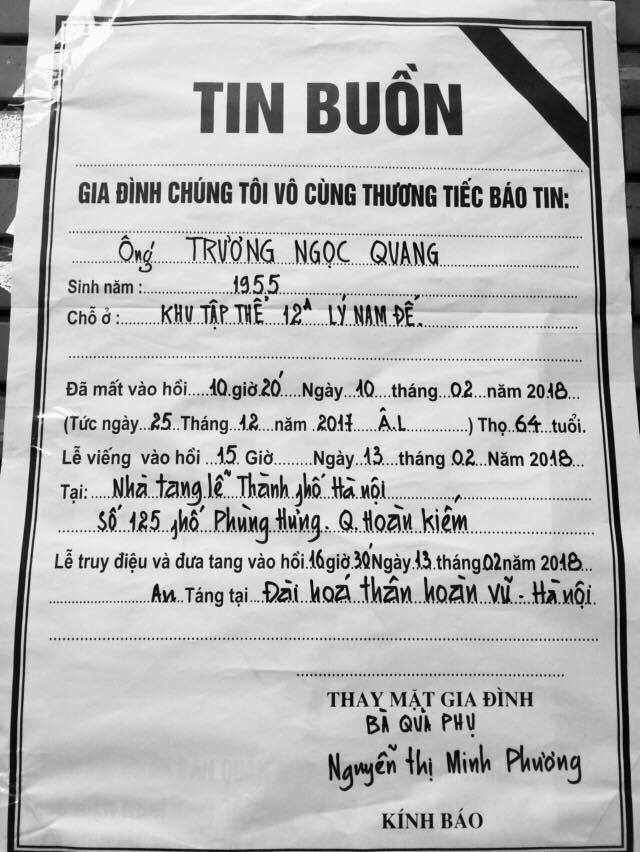 TIN BUỒN
GIA ĐÌNH CHÚNG TÔI VÔ CÙNG THƯƠNG TIẾC BÁO TIN:
Ông TRƯƠNG NGỌC QUANG
Sinh năm : 1955
Chỗ ở : KHU TẬP THỂ 12A LÝ NAM ĐẾ.
Đã mất vào hồi 10 giờ 20' Ngày 10 tháng 02 năm 2018
(Tức ngày 25 Tháng 12 năm 2017 Â.L ) Thọ 64 tuổi.
Lễ viếng vào hồi 15 Giờ Ngày 13 tháng 02 Năm 2018
Tại: Nhà tang lễ Thành phố Hà nội
Số 125 phố Phùng Hưng. Q. Hoàn kiếm
Lễ truy điệu và đưa tang vào hồi 16 giờ 30' Ngày 13 tháng 02 năm 2018
An Táng tại Đài hoá thân hoàn vũ - Hà nội
THAY MẶT GIA ĐÌNH
BÀ QUẢ PHỤ
Nguyễn thị Minh Phương
KÍNH BÁO